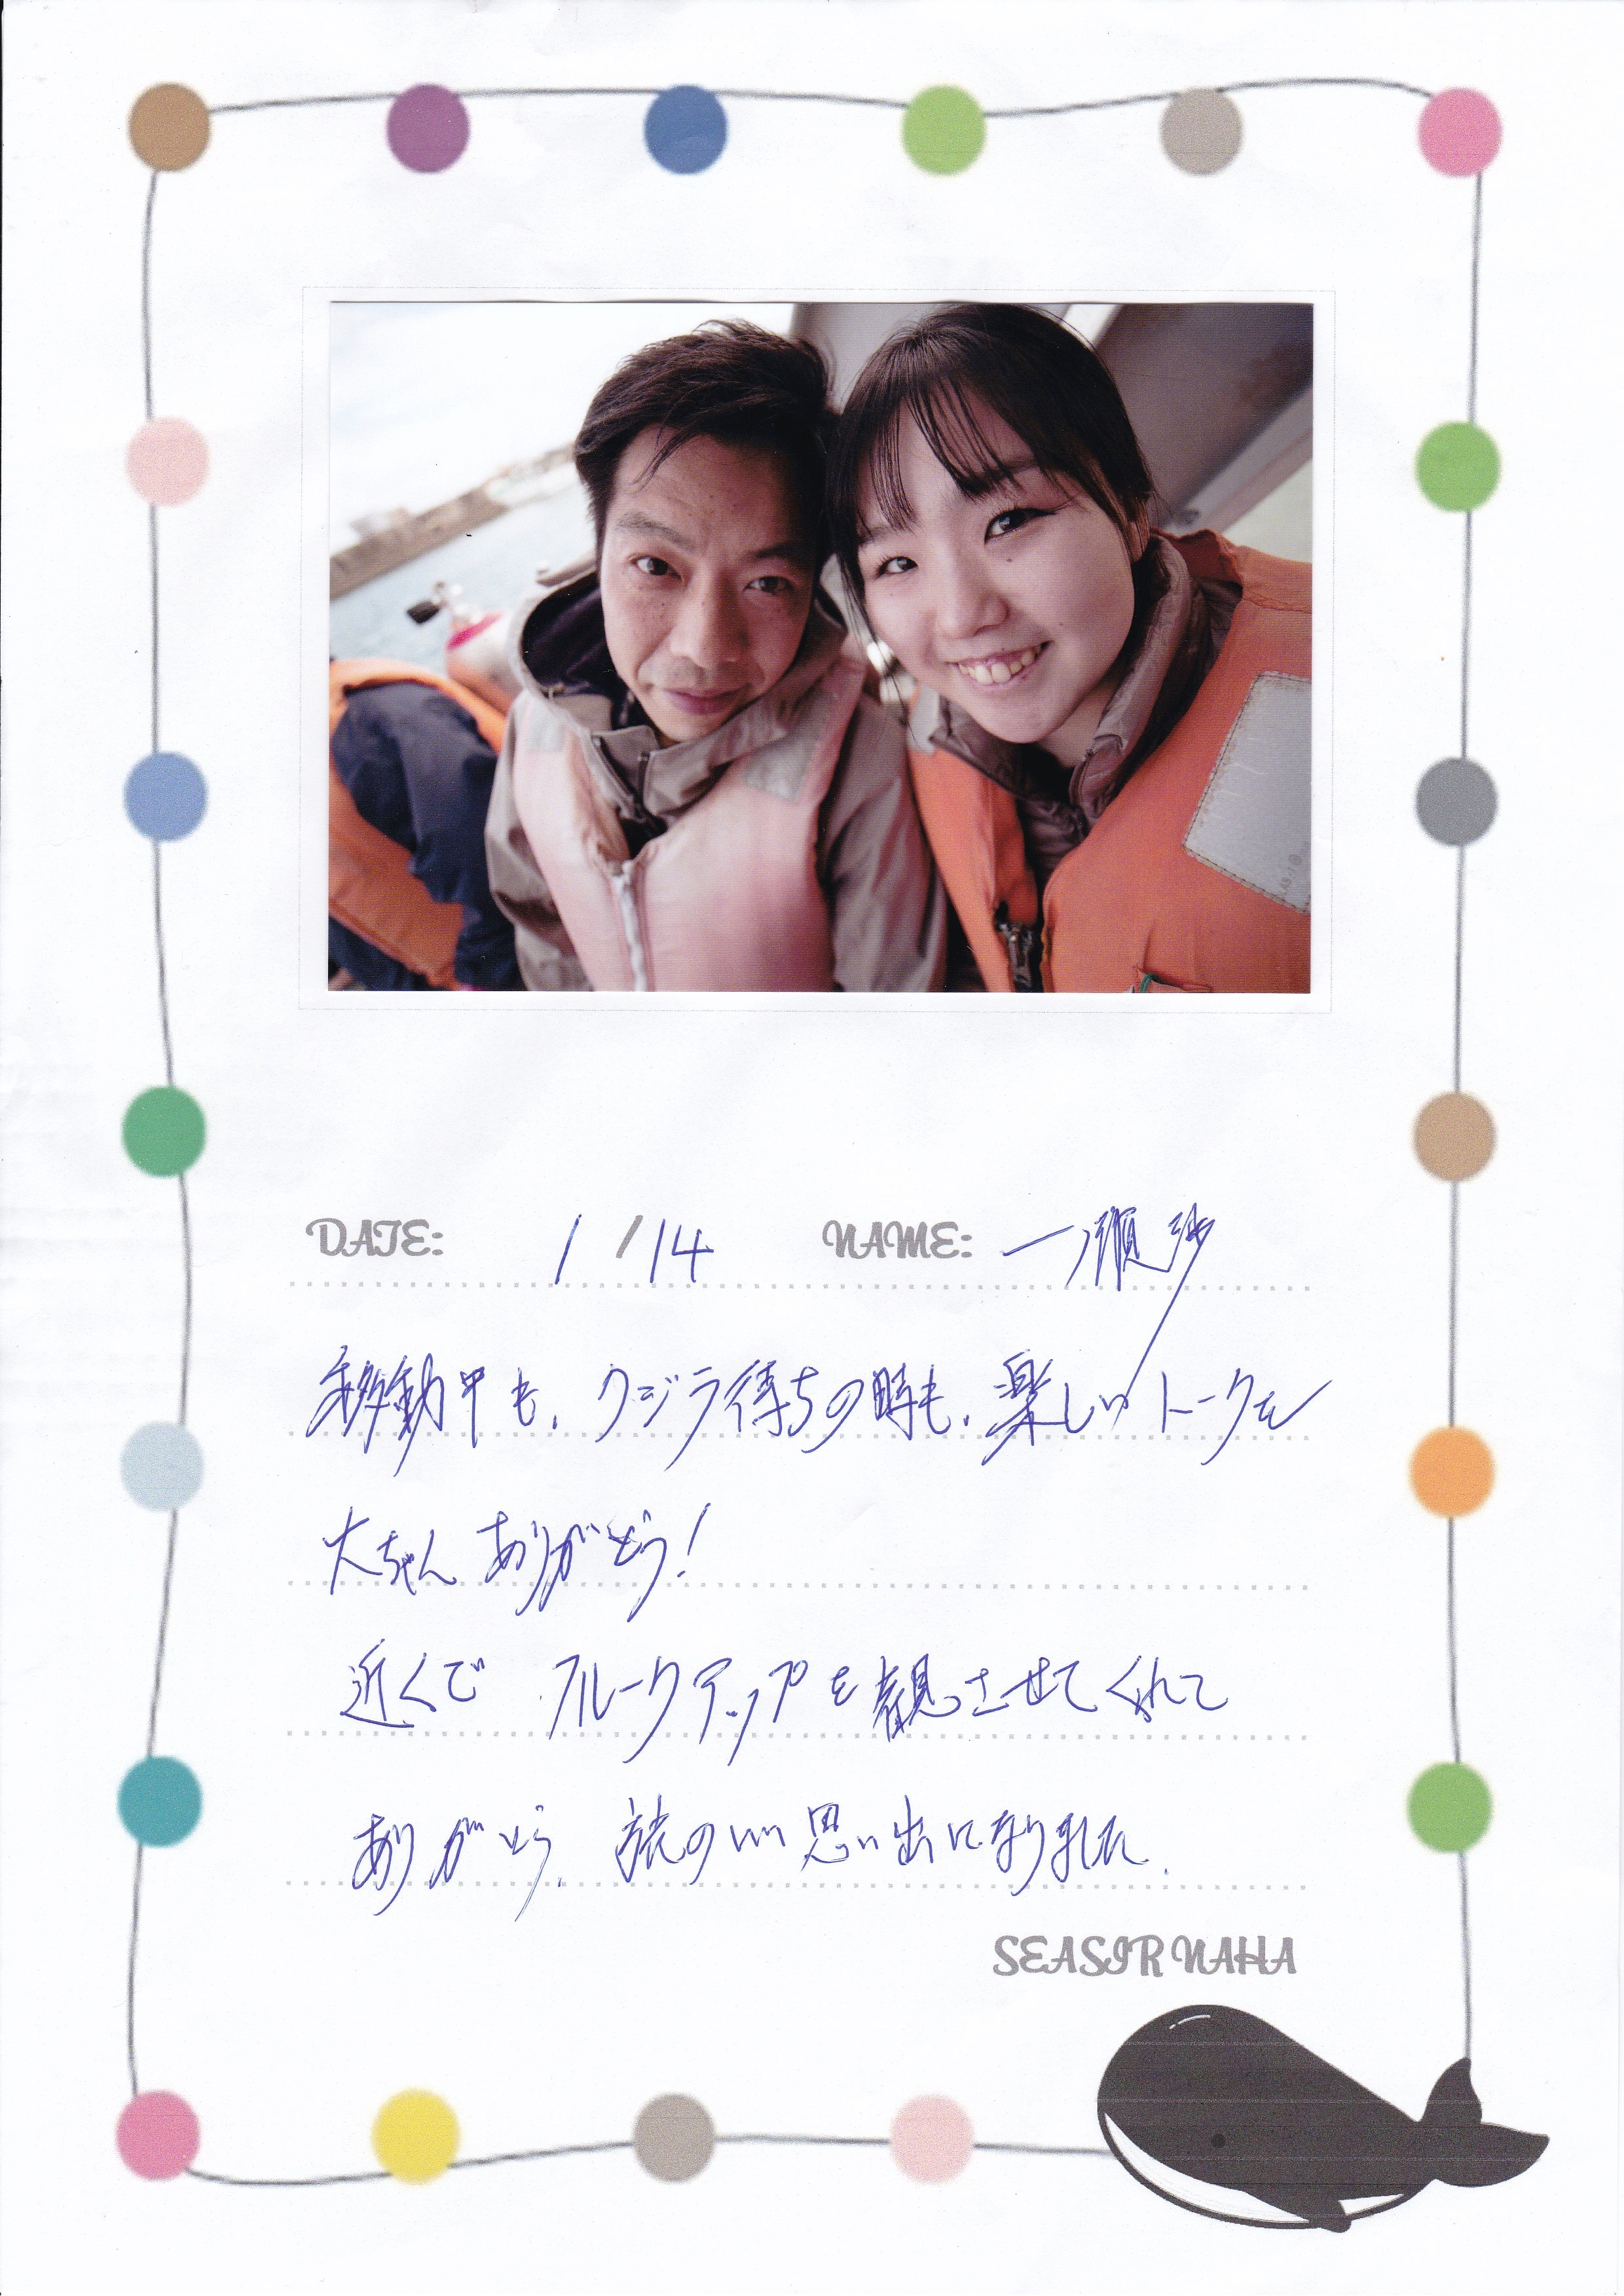 DATE: 1/14 NAME: 一瀬
移動中も、クジラ待ちの時も、楽しいトークを
大ちゃん ありがとう!
近くで フルークアップを観させてくれて
ありがとう、旅のいい思い出になりました.
SEASIR NAHA